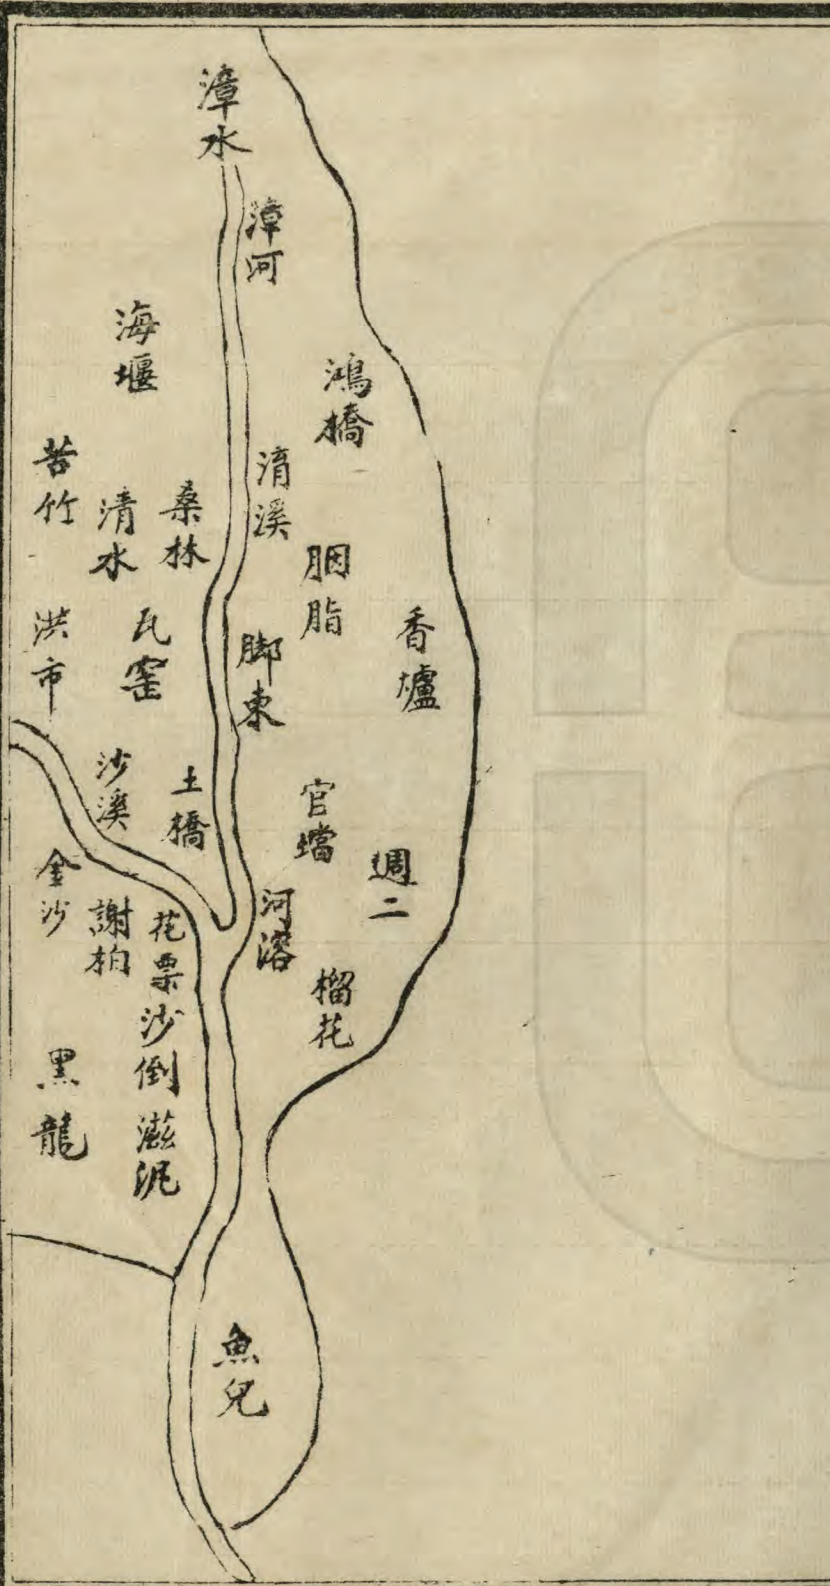 漳水
漳河
海堰
鴻橋
苦竹
清水
桑林
淯溪
胭脂
香壚
洪市
瓦窑
脚東
沙溪
土橋
官壋
週二
金沙
謝柏
花栗
河溶
榴花
沙倒
黑龍
泥
魚兒